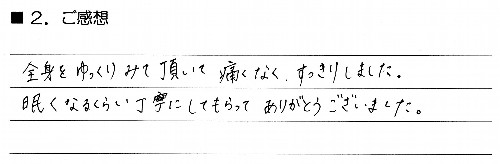 ■2．ご感想
全身をゆっくりみて頂いて 痛くなく、すっきりしました。
眠くなるくらい丁寧にしてもらって ありがとうございました。